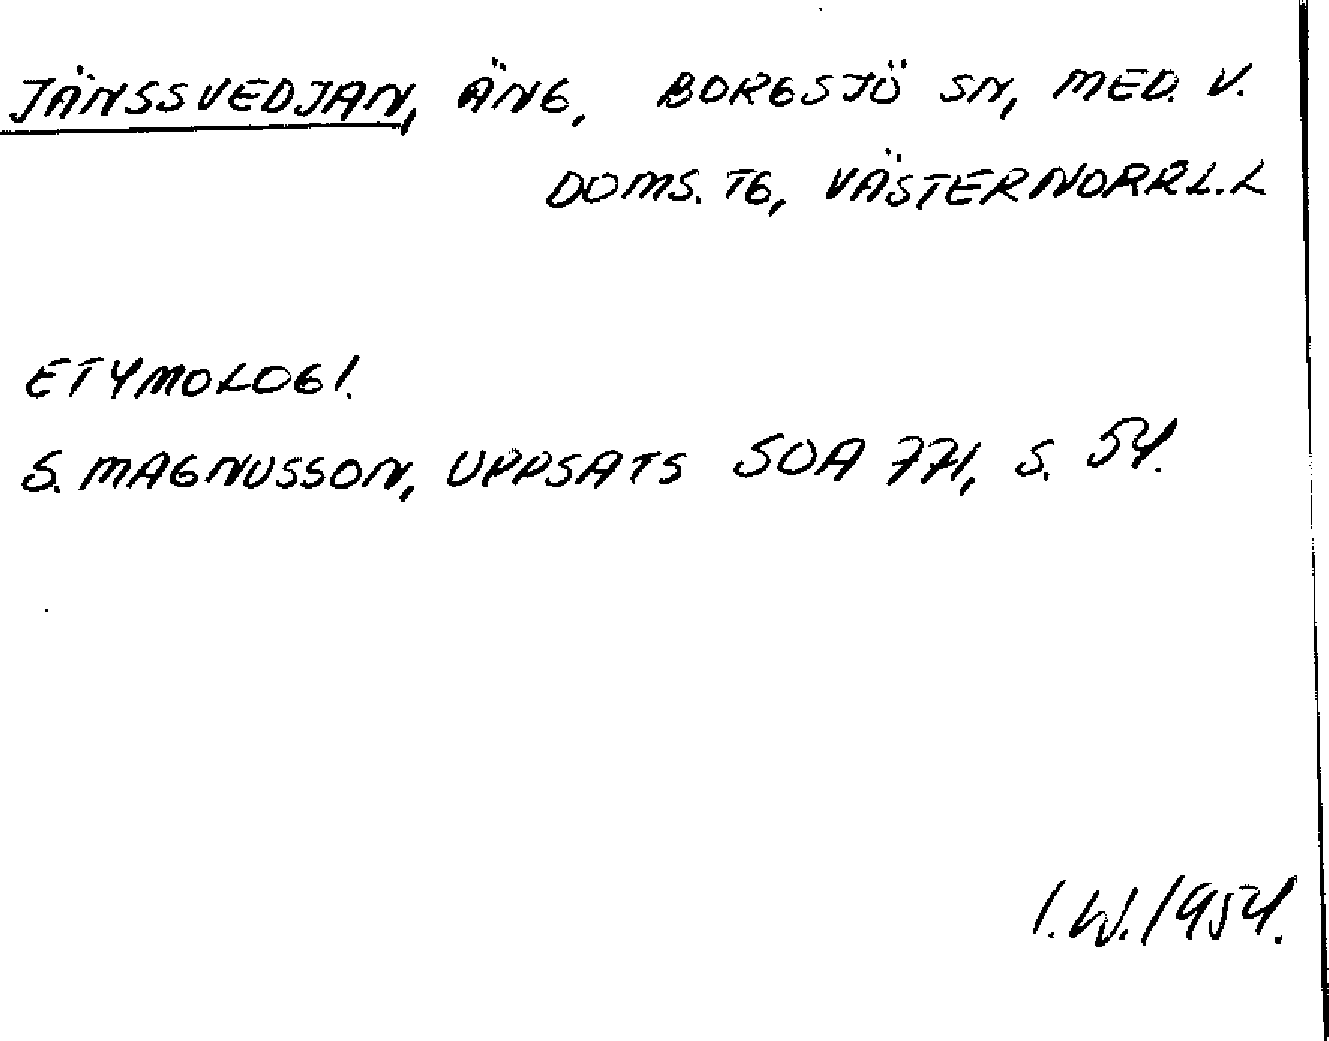 JÄNSSVEDJAN, ÄNG, BORGSJÖ SN, MED. V.
DOMS. TG, VÄSTERNORRL. L
ETYMOLOGI.
S. MAGNUSSON, UPPSATS SOA 771, S. 54.
I.W. 1954.